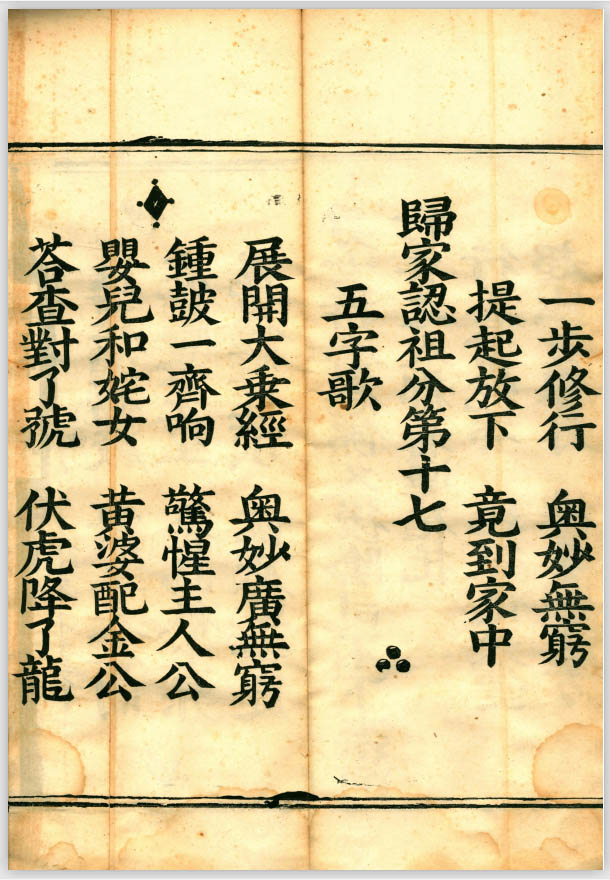 一步修行　奥妙無窮
提起放下　竟到家中
歸家認祖分第十七
五字歌
展開大乗經　奥妙廣無窮
鍾皷一齊响　驚惺主人公
嬰兒和姹女　黄婆配金公
荅查對了號　伏虎降了龍